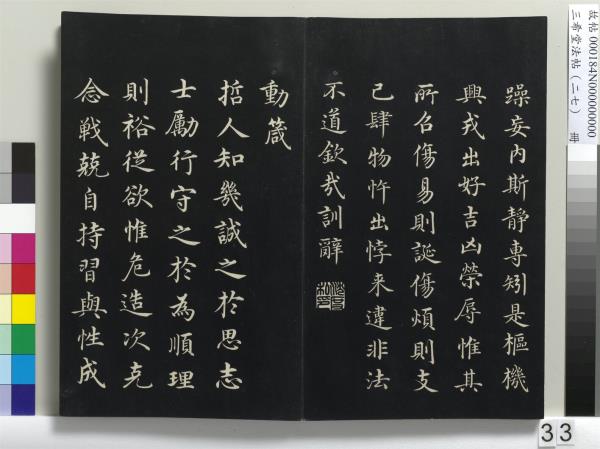 躁妄內斯靜專矧是樞機
興戎出好吉凶榮辱惟其
所召傷易則誕傷煩則支
己肆物忤出悖来違非法
不道欽哉訓辭
動箴
哲人知幾誠之於思志
士勵行守之於為順理
則裕從欲惟危造次克
念戰兢自持習與性成
故帖 000184N000000000
三希堂法帖（二七） 冊
33